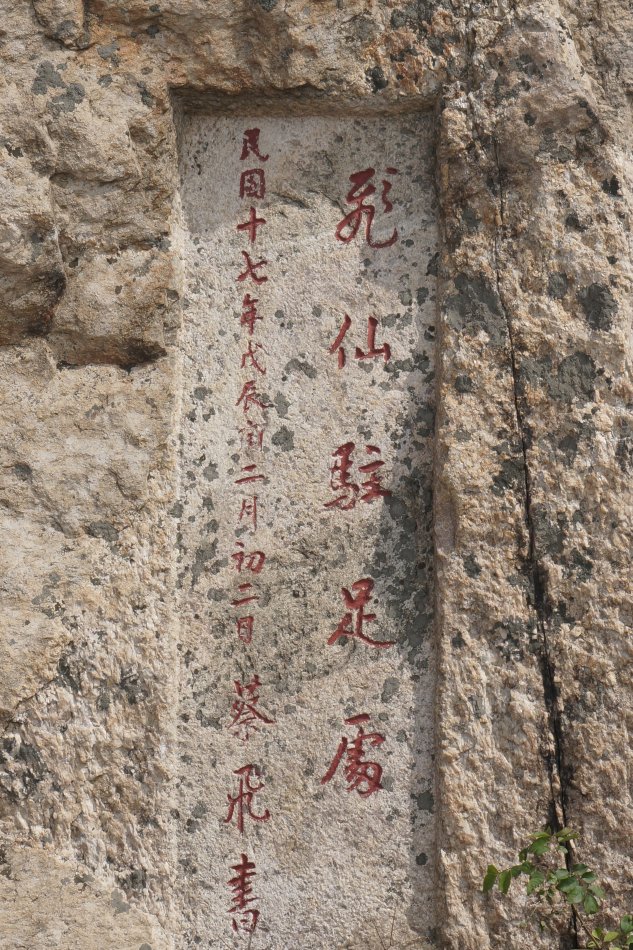 飛仙駐足處
民國十七年戊辰閏二月初二日蔡飛書